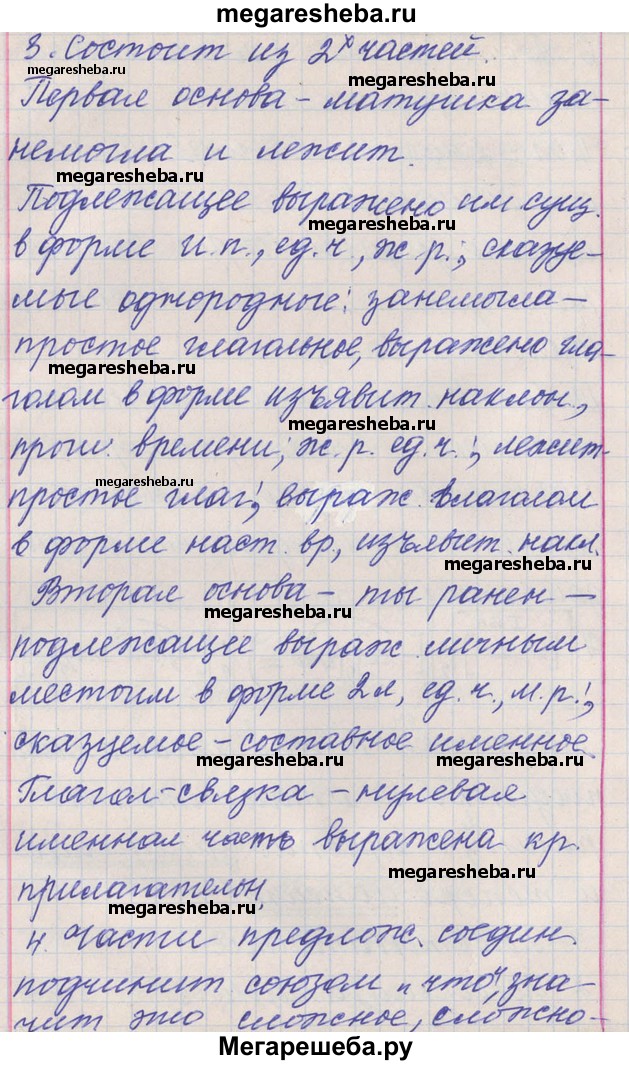 megaresheba.ru
3. Состоит из 2х частей.
megaresheba.ru megaresheba.ru
Первая основа – матушка за-
немогла и лежит.
megaresheba.ru
Подлежащее выражено им сущ.
megaresheba.ru
в форме и.п., ед.ч., ж.р.; сказуе-
мые однородные: занемогла –
простое глагольное, выражено гла-
megaresheba.ru
голом в форме изъявит. наклон.,
прош. времени; ж.р. ед.ч.; лежит-
megaresheba.ru megaresheba.ru
простое глаг., выраж. глаголом
в форме наст. вр., изъявит. накл.
Вторая основа – ты ранен –
megaresheba.ru
подлежащее выраж. личным
местоим в форме 2л., ед.ч., м.р.;
сказуемое – составное именное.
megaresheba.ru
Глагол-связка – нулевая
именная часть выражена кр.
megaresheba.ru
прилагательн.
megaresheba.ru
4. Части предлож. соедин.
подчинит союзом „что", зна-
чит это сложное, сложно-
Мегарешеба.ру